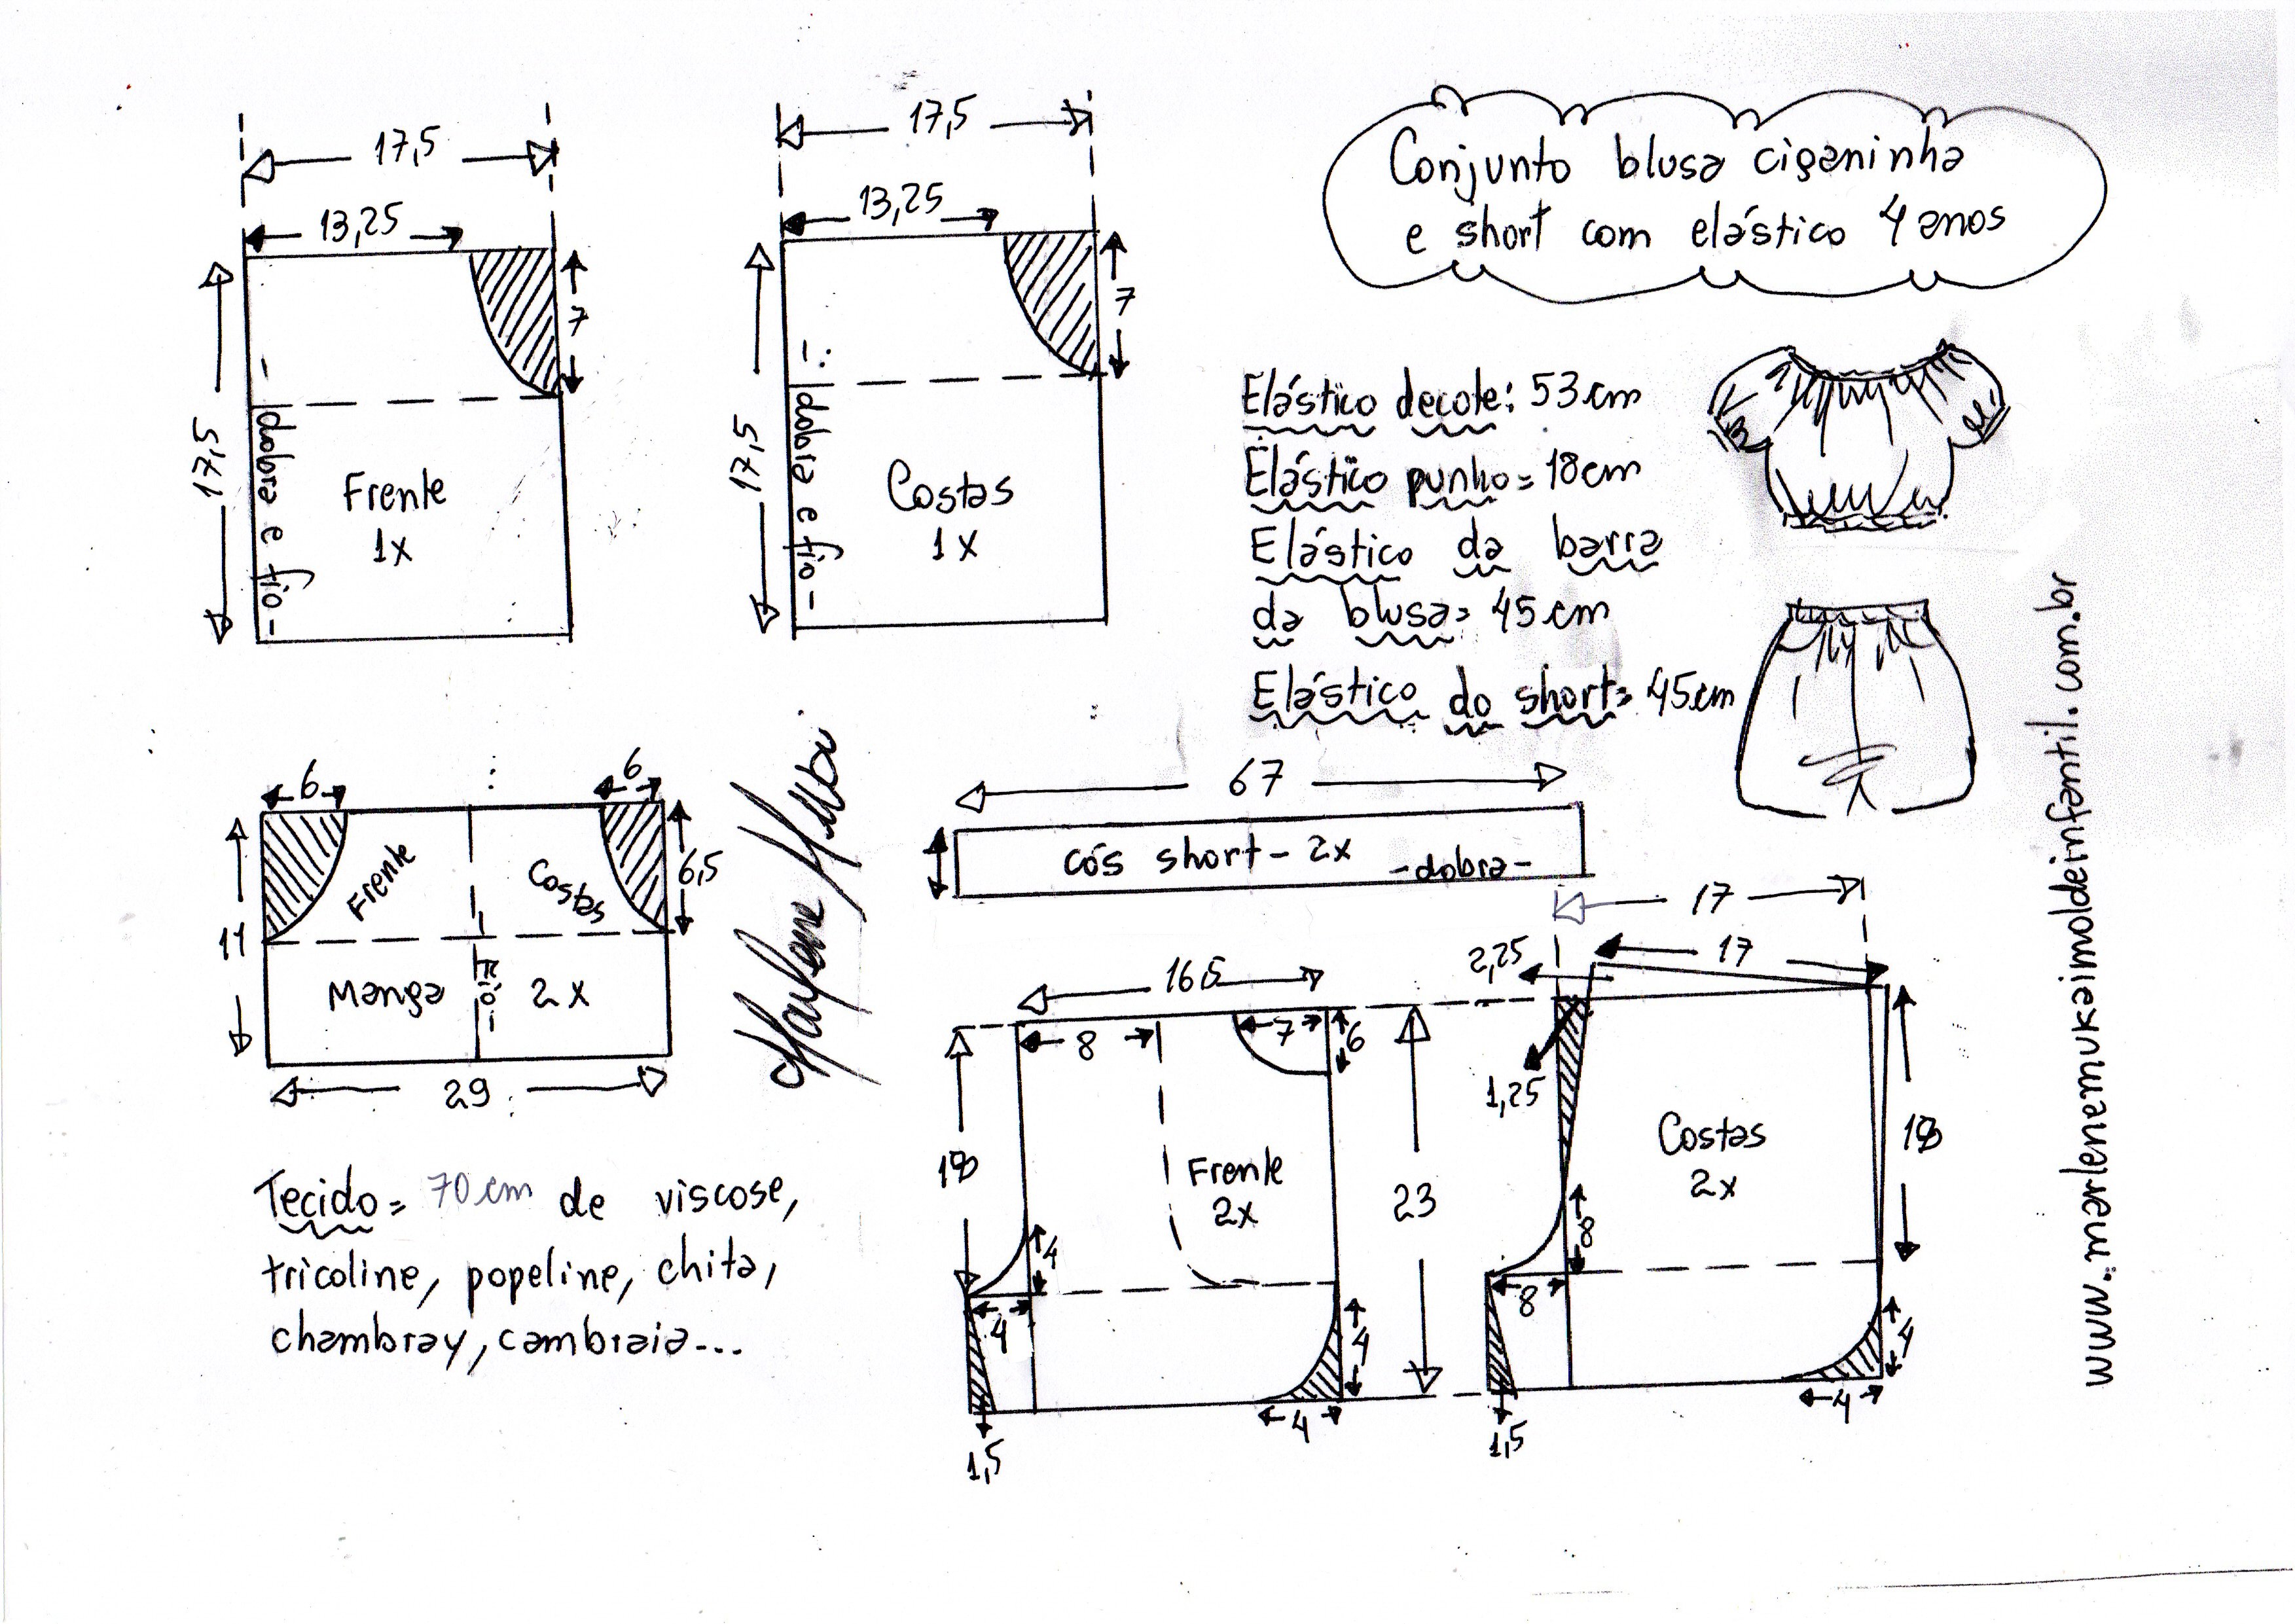 Conjunto blusa ciganinha
e short com elástico 4 anos
17,5
13,25
7
17,5
dobra e fio
Frente
1x
17,5
13,25
7
17,5
dobra e fio
Costas
1x
Elástico decote: 53cm
Elástico punho= 18cm
Elástico da barra
da blusa= 45cm
Elástico do short= 45cm
6
6
6,5
11
Frente
Costas
Manga
fio
2x
29
67
cós short - 2x
-dobra-
16,5
8
7
6
18
4
4
Frente
2x
23
4
4
1,5
17
17
2,25
1,25
Costas
2x
18
8
8
4
4
1,5
Tecido= 70cm de viscose,
tricoline, popeline, chita,
chambray, cambraia...
www.marlenemukaimoldeinfantil.com.br